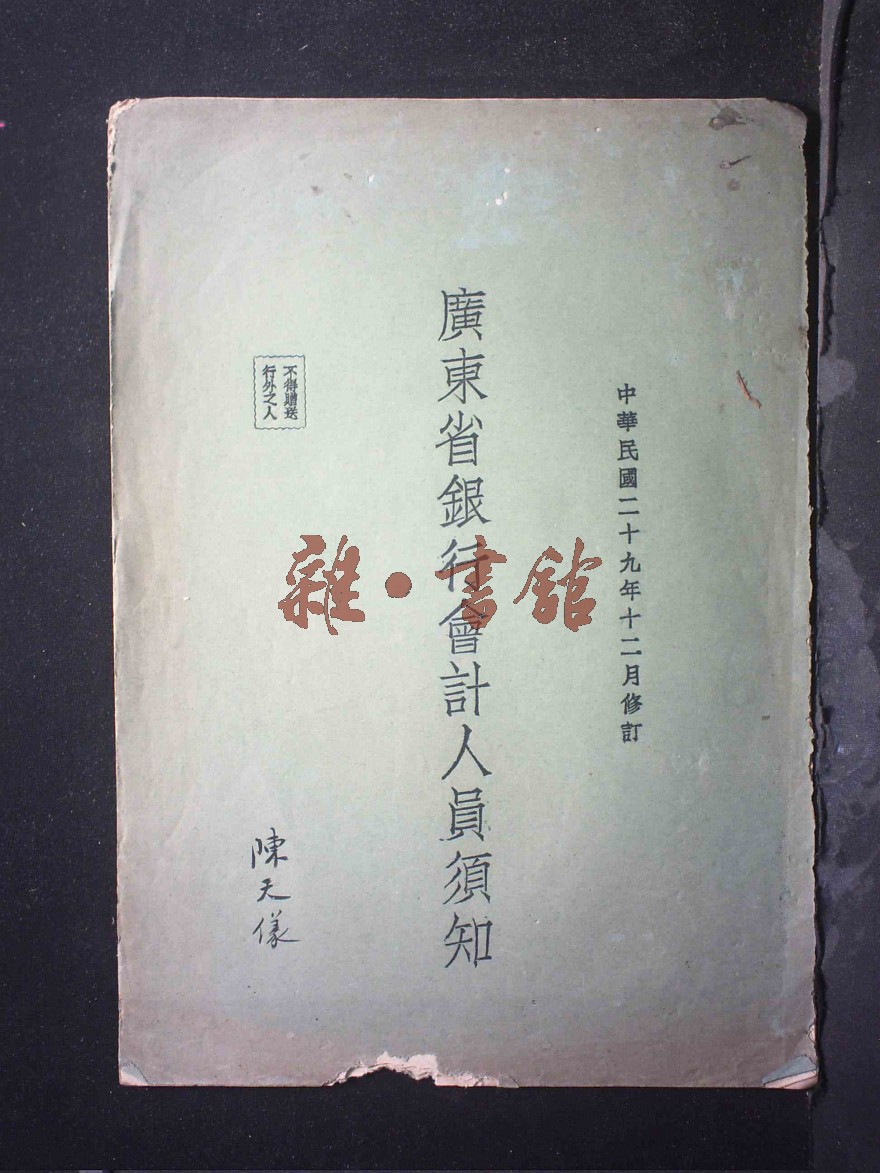 中華民國二十九年十二月修訂
廣東省銀行會計人員須知
不得贈送
行外之人
陳天儀
雜·書館